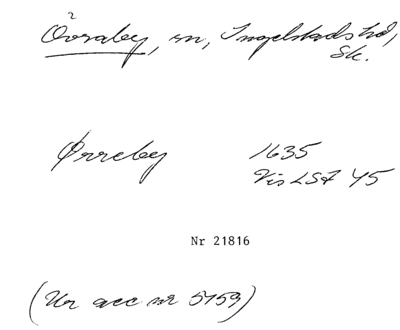 Övraby, sn, Ingelstads hd,
Sk.
Ørreby 1635
Vis LSF 45
Nr 21816
(Ur acc nr 5159)